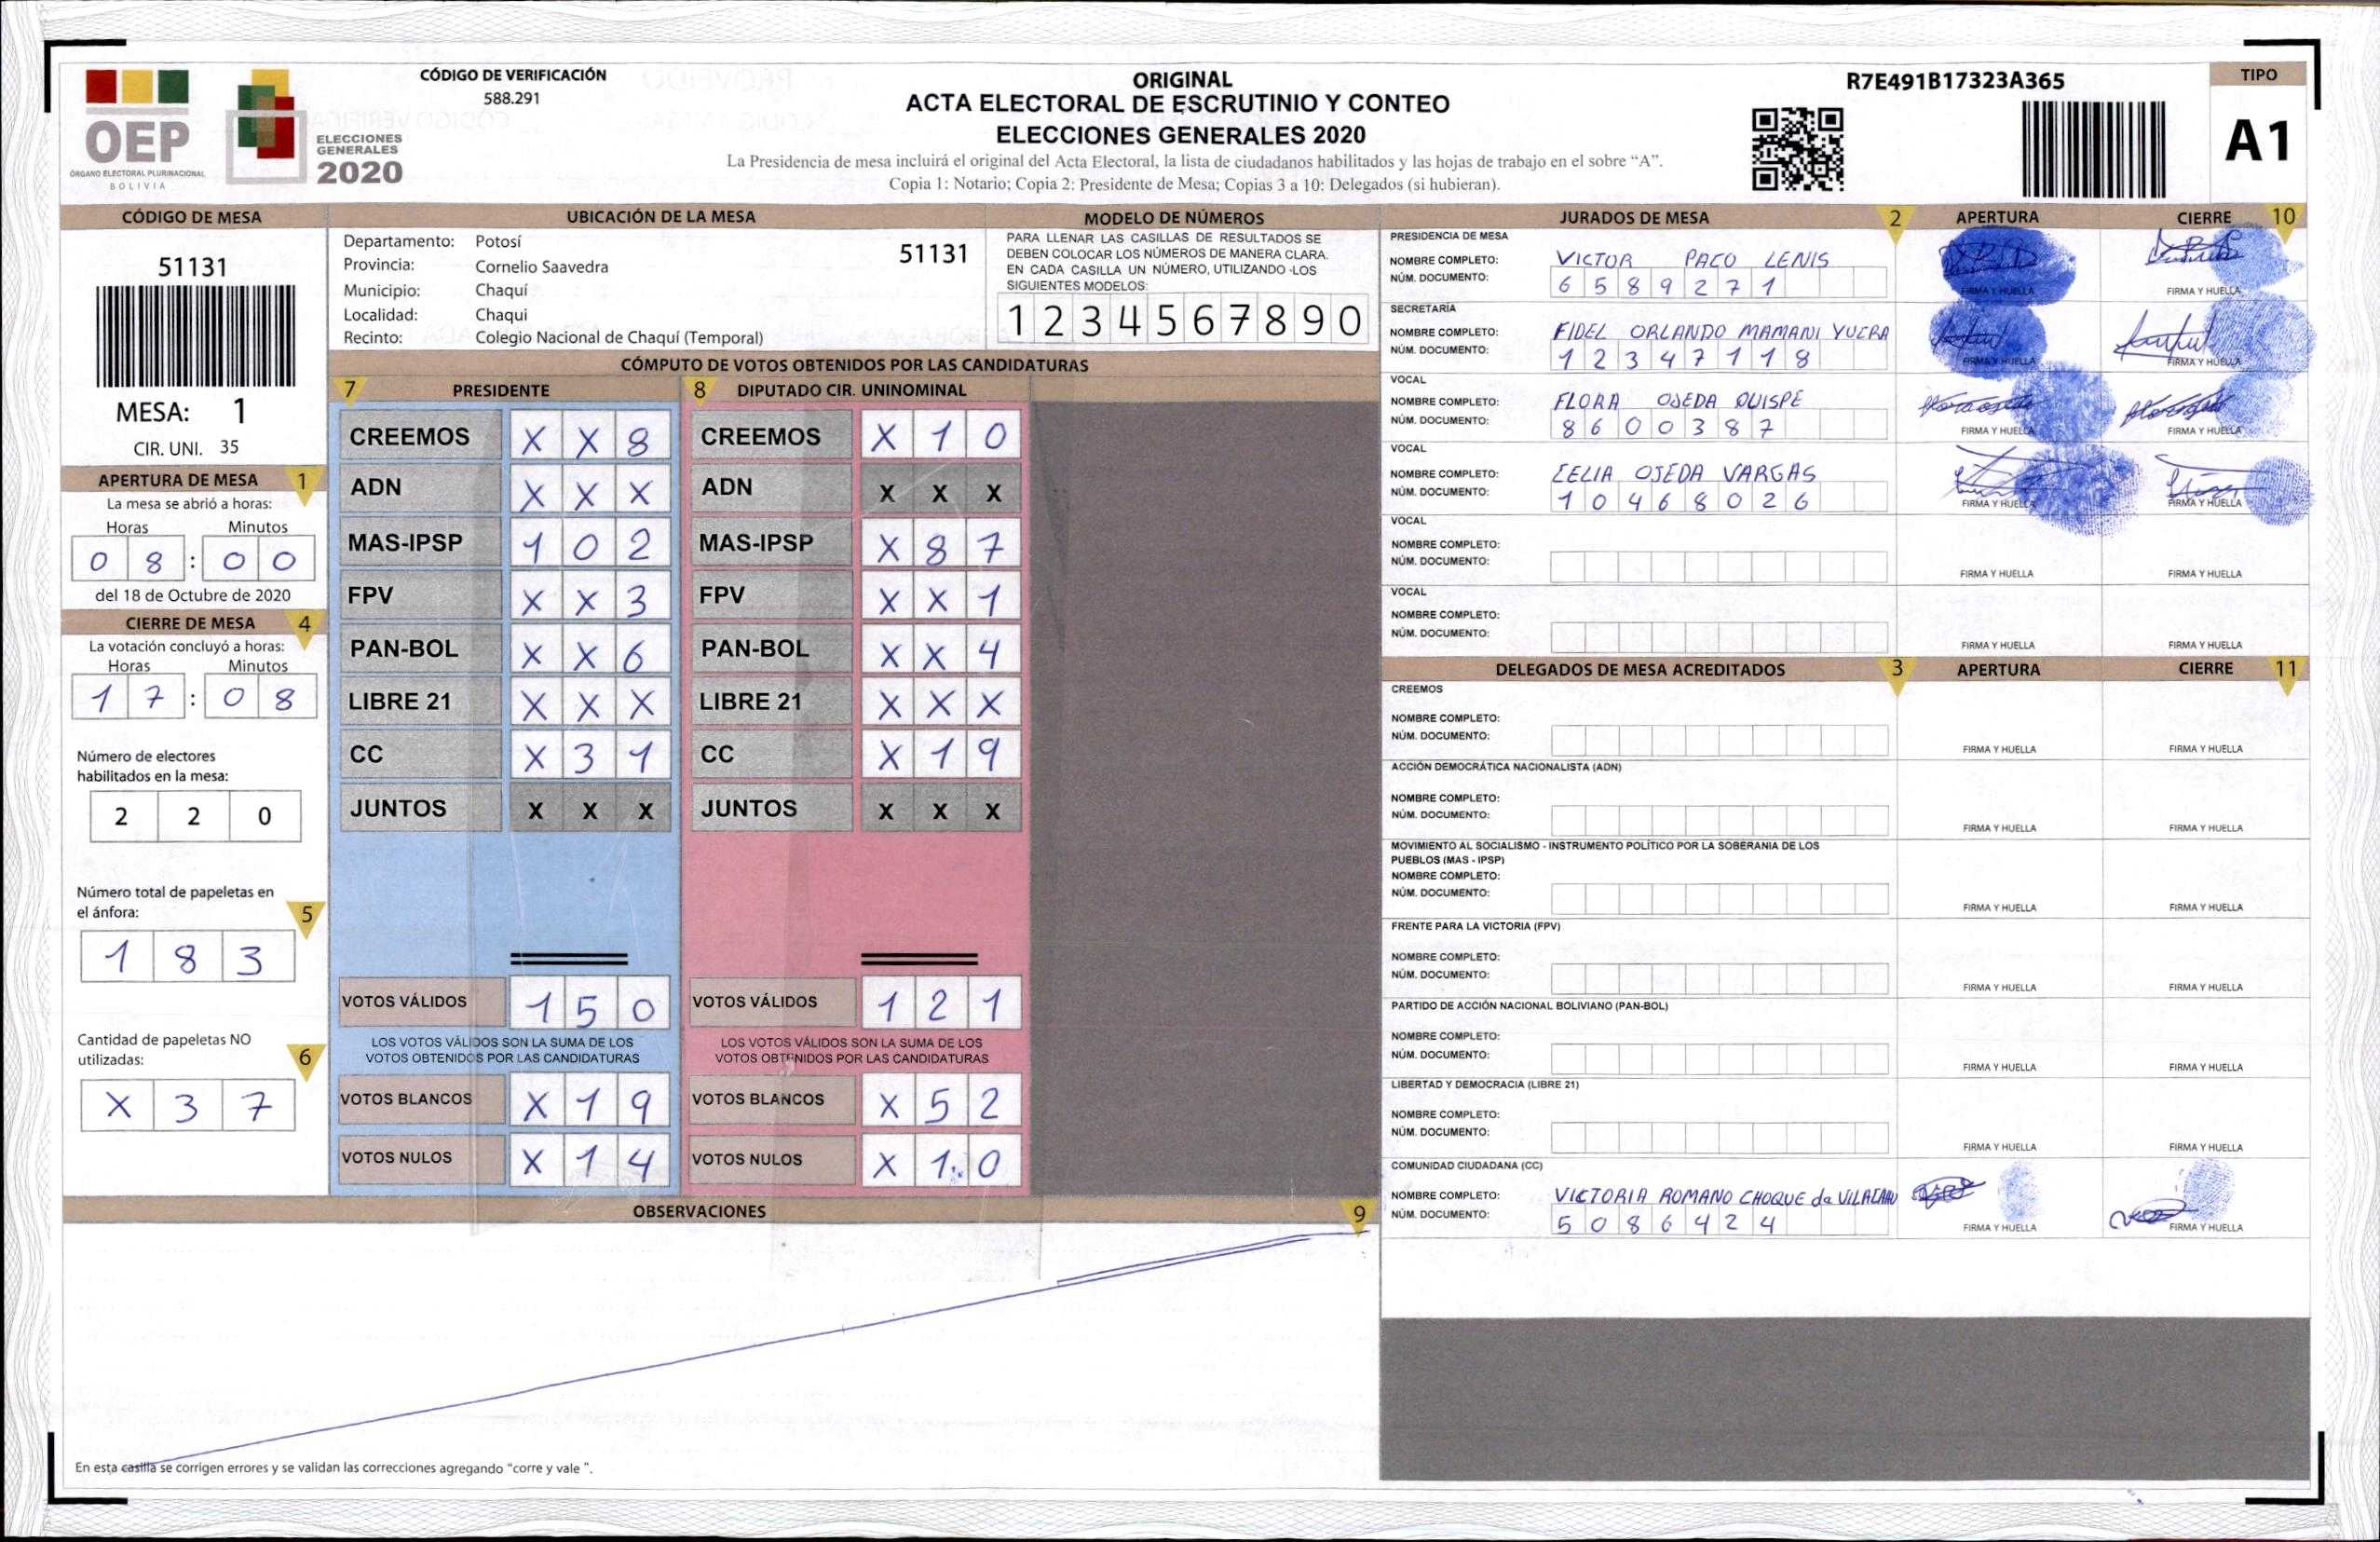 OEP
ÓRGANO ELECTORAL PLURINACIONAL
BOLIVIA
ELECCIONES
GENERALES
2020
CÓDIGO DE VERIFICACIÓN
588.291
ORIGINAL
ACTA ELECTORAL DE ESCRUTINIO Y CONTEO
ELECCIONES GENERALES 2020
La Presidencia de mesa incluirá el original del Acta Electoral, la lista de ciudadanos habilitados y las hojas de trabajo en el sobre “A”.
Copia 1: Notario; Copia 2: Presidente de Mesa; Copias 3 a 10: Delegados (si hubieran).
R7E491B17323A365
TIPO
A1
CÓDIGO DE MESA
51131
MESA: 1
CIR. UNI. 35
APERTURA DE MESA 1
La mesa se abrió a horas:
Horas Minutos
0 8 : 0 0
del 18 de Octubre de 2020
CIERRE DE MESA 4
La votación concluyó a horas:
Horas Minutos
1 7 : 0 8
Número de electores
habilitados en la mesa:
2 2 0
Número total de papeletas en
el ánfora: 5
1 8 3
Cantidad de papeletas NO
utilizadas: 6
X 3 7
UBICACIÓN DE LA MESA
Departamento: Potosí 51131
Provincia: Cornelio Saavedra
Municipio: Chaquí
Localidad: Chaqui
Recinto: Colegio Nacional de Chaquí (Temporal)
MODELO DE NÚMEROS
PARA LLENAR LAS CASILLAS DE RESULTADOS SE
DEBEN COLOCAR LOS NÚMEROS DE MANERA CLARA.
EN CADA CASILLA UN NÚMERO, UTILIZANDO LOS
SIGUIENTES MODELOS:
1 2 3 4 5 6 7 8 9 0
CÓMPUTO DE VOTOS OBTENIDOS POR LAS CANDIDATURAS
7 PRESIDENTE
CREEMOS X X 8
ADN X X X
MAS-IPSP 1 0 2
FPV X X 3
PAN-BOL X X 6
LIBRE 21 X X X
CC X 3 1
JUNTOS X X X
VOTOS VÁLIDOS 1 5 0
LOS VOTOS VÁLIDOS SON LA SUMA DE LOS
VOTOS OBTENIDOS POR LAS CANDIDATURAS
VOTOS BLANCOS X 1 9
VOTOS NULOS X 1 4
8 DIPUTADO CIR. UNINOMINAL
CREEMOS X 1 0
ADN X X X
MAS-IPSP X 8 7
FPV X X 1
PAN-BOL X X 4
LIBRE 21 X X X
CC X 1 9
JUNTOS X X X
VOTOS VÁLIDOS 1 2 1
LOS VOTOS VÁLIDOS SON LA SUMA DE LOS
VOTOS OBTENIDOS POR LAS CANDIDATURAS
VOTOS BLANCOS X 5 2
VOTOS NULOS X 1 0
OBSERVACIONES 9
En esta casilla se corrigen errores y se validan las correcciones agregando “corre y vale ”.
JURADOS DE MESA 2 APERTURA CIERRE 10
PRESIDENCIA DE MESA
NOMBRE COMPLETO: VICTOR PACO LENIS
NÚM. DOCUMENTO: 6 5 8 9 2 7 1
FIRMA Y HUELLA FIRMA Y HUELLA
SECRETARÍA
NOMBRE COMPLETO: FIDEL ORLANDO MAMANI YUCRA
NÚM. DOCUMENTO: 1 2 3 4 7 1 1 8
FIRMA Y HUELLA FIRMA Y HUELLA
VOCAL
NOMBRE COMPLETO: FLORA OJEDA QUISPE
NÚM. DOCUMENTO: 8 6 0 0 3 8 7
FIRMA Y HUELLA FIRMA Y HUELLA
VOCAL
NOMBRE COMPLETO: CELIA OJEDA VARGAS
NÚM. DOCUMENTO: 1 0 4 6 8 0 2 6
FIRMA Y HUELLA FIRMA Y HUELLA
VOCAL
NOMBRE COMPLETO:
NÚM. DOCUMENTO:
FIRMA Y HUELLA FIRMA Y HUELLA
VOCAL
NOMBRE COMPLETO:
NÚM. DOCUMENTO:
FIRMA Y HUELLA FIRMA Y HUELLA
DELEGADOS DE MESA ACREDITADOS 3 APERTURA CIERRE 11
CREEMOS
NOMBRE COMPLETO:
NÚM. DOCUMENTO:
FIRMA Y HUELLA FIRMA Y HUELLA
ACCIÓN DEMOCRÁTICA NACIONALISTA (ADN)
NOMBRE COMPLETO:
NÚM. DOCUMENTO:
FIRMA Y HUELLA FIRMA Y HUELLA
MOVIMIENTO AL SOCIALISMO - INSTRUMENTO POLÍTICO POR LA SOBERANIA DE LOS
PUEBLOS (MAS - IPSP)
NOMBRE COMPLETO:
NÚM. DOCUMENTO:
FIRMA Y HUELLA FIRMA Y HUELLA
FRENTE PARA LA VICTORIA (FPV)
NOMBRE COMPLETO:
NÚM. DOCUMENTO:
FIRMA Y HUELLA FIRMA Y HUELLA
PARTIDO DE ACCIÓN NACIONAL BOLIVIANO (PAN-BOL)
NOMBRE COMPLETO:
NÚM. DOCUMENTO:
FIRMA Y HUELLA FIRMA Y HUELLA
LIBERTAD Y DEMOCRACIA (LIBRE 21)
NOMBRE COMPLETO:
NÚM. DOCUMENTO:
FIRMA Y HUELLA FIRMA Y HUELLA
COMUNIDAD CIUDADANA (CC)
NOMBRE COMPLETO: VICTORIA ROMANO CHOQUE de
NÚM. DOCUMENTO: 5 0 8 6 4 2 4
FIRMA Y HUELLA FIRMA Y HUELLA